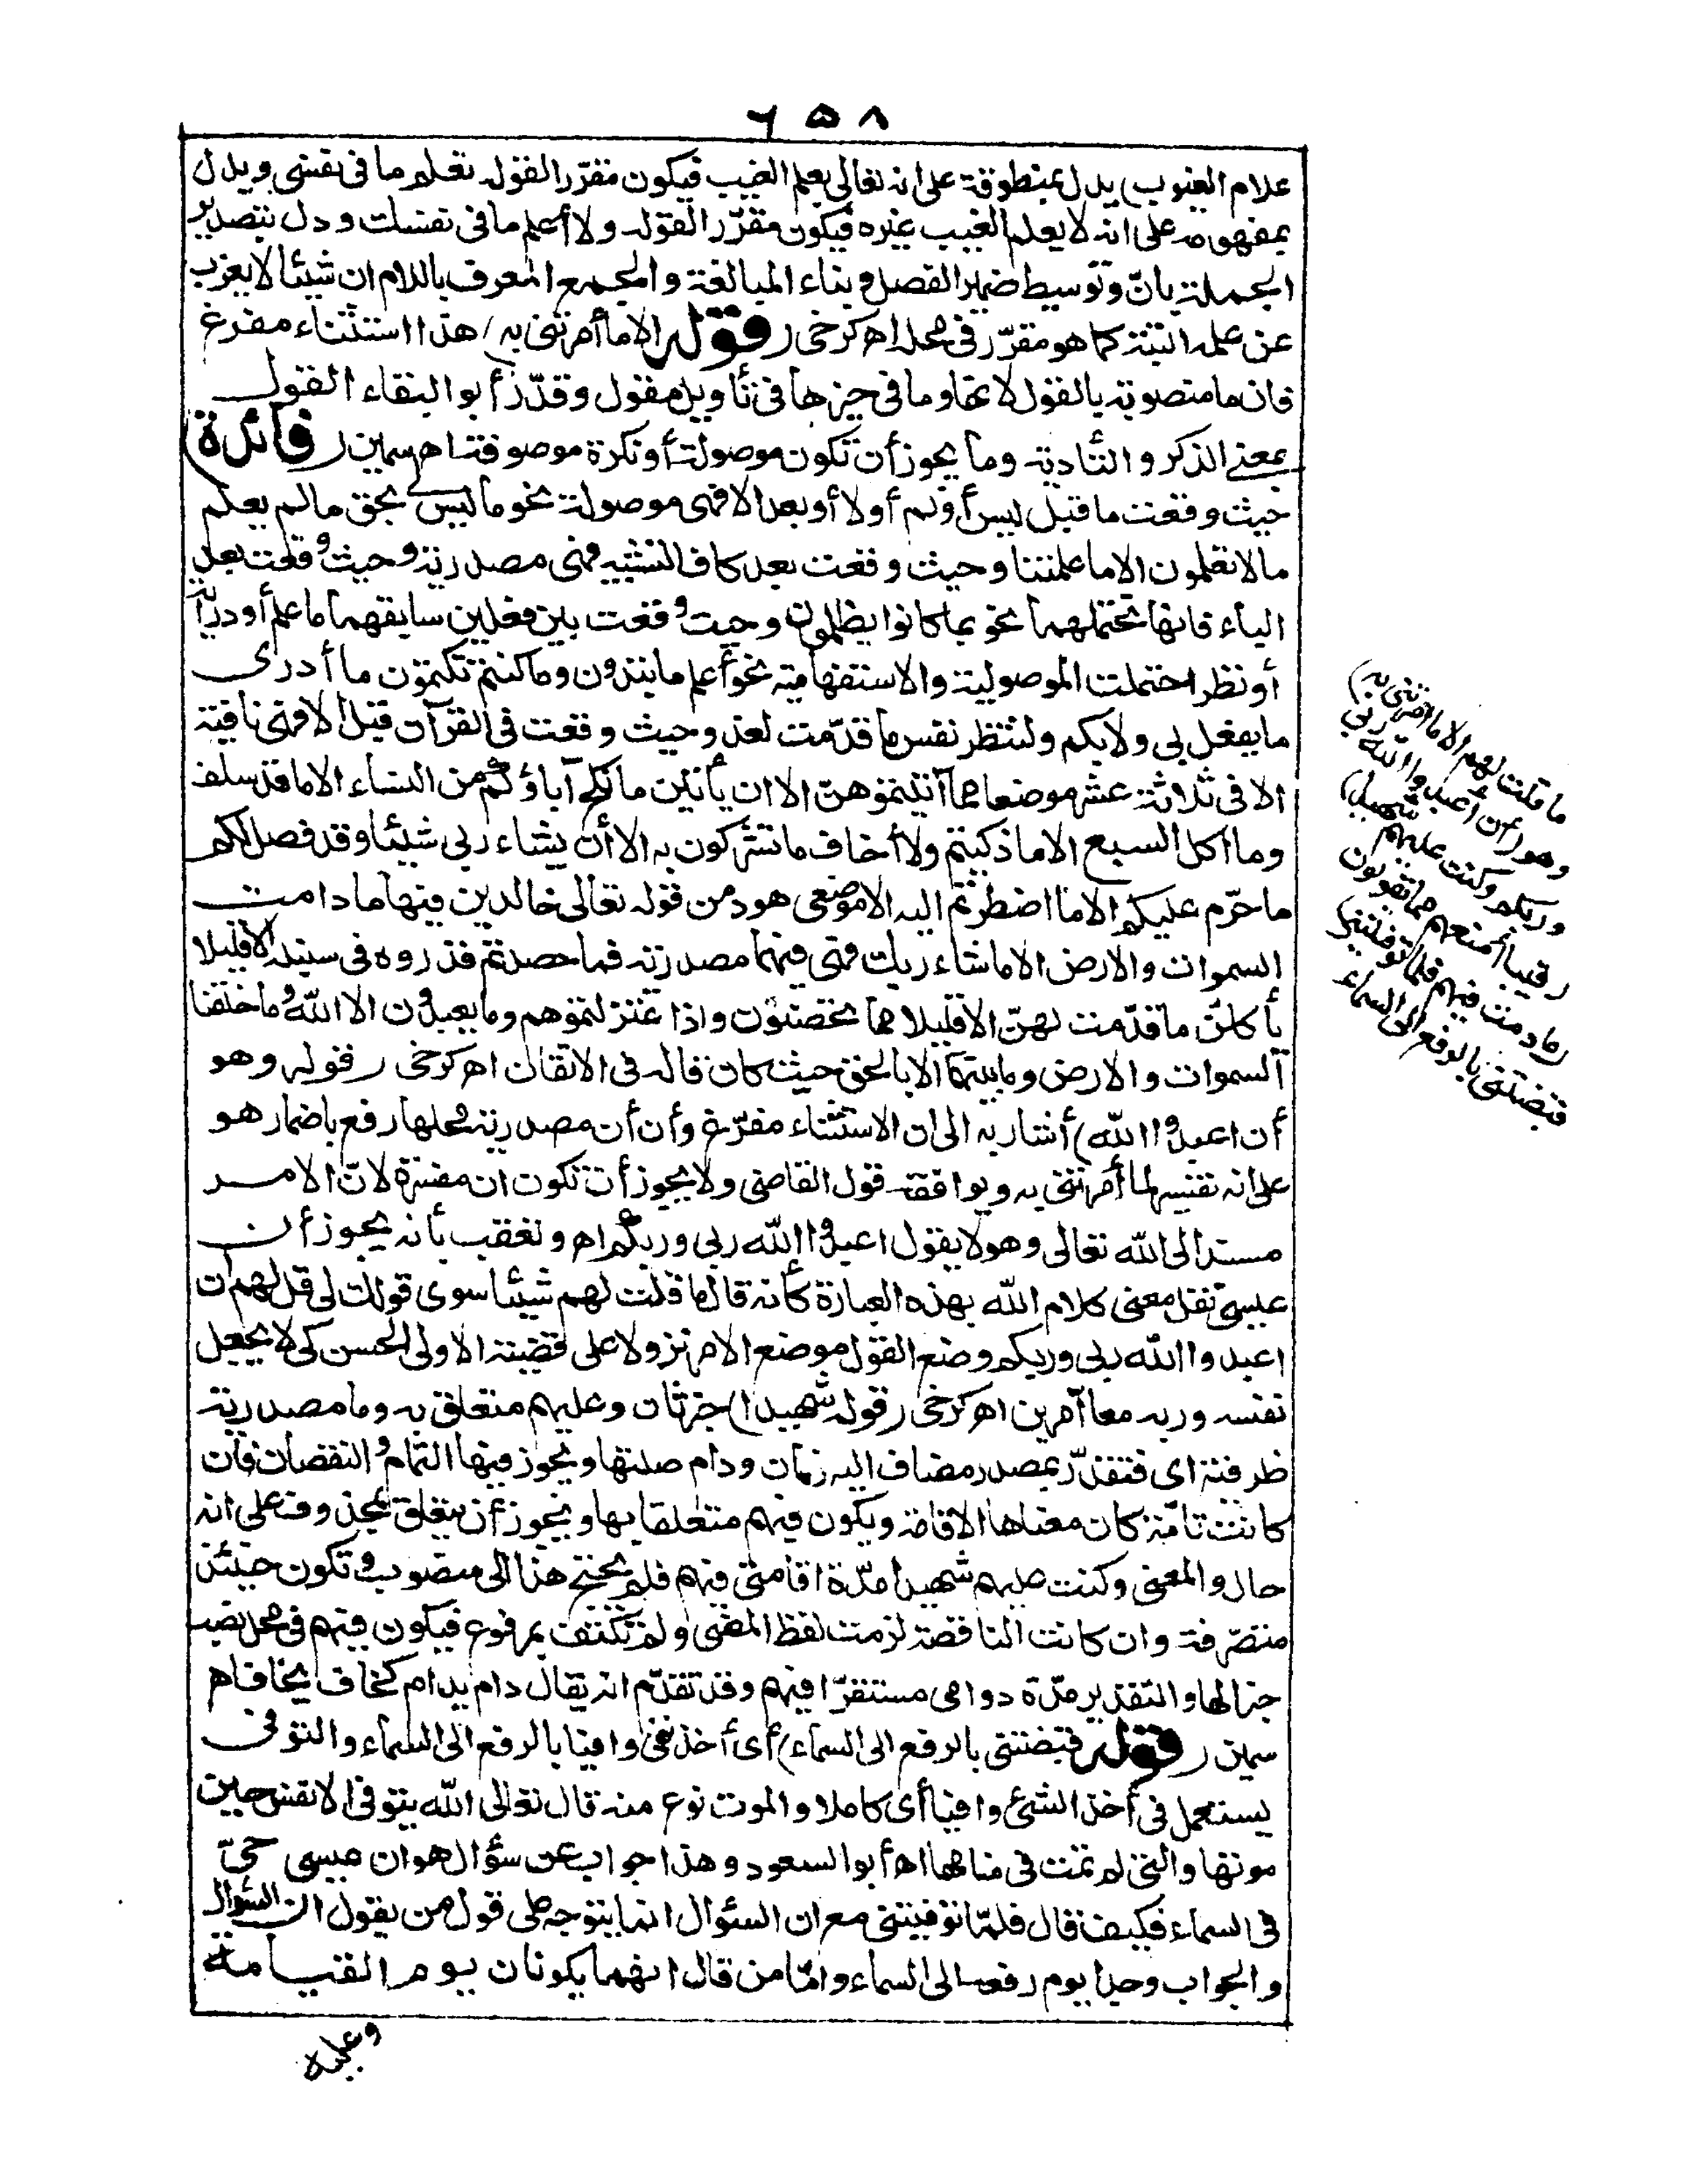 ٦٥٨
علام الغيوب) يدل بمنطوقه على انه تعالى يعلم الغيب فيكون مقرر القوله تعلم ما فى نفسى ويدل
بمفهومه على انه لا يعلم الغيب غيره فيكون مقرّر القوله ولا أعلم ما فى نفسك ودل بتصدير
الجملة بانّ وتوسيط ضمير الفصل وبناء المبالغة والجمع المعرف باللام ان شيئا لا يعزب
عن علمه البتة كما هو مقرّر فى محله اه كرخى (قوله الا ما أمرتنى به) هذا استثناء مفرغ
فان ما منصوبة بالقول لانها وما فى حيزها فى تأويل مقول وقدّر أبو البقاء القول
بمعنى الذكر والتأدية وما يجوز أن تكون موصولة أو نكرة موصوفة اه سمين (فائدة)
حيث وقعت ما قبل ليس أو لم أو لا أو بعد الا فهى موصولة نحو ما ليس بحق ما لم يعلم
ما لا تعلمون الا ما علمتنا وحيث وقعت بعد كاف التشبيه فهى مصدرية وحيث وقعت بعد
الباء فانها تحتملهما نحو بما كانوا يظلمون وحيث وقعت بين فعلين سابقهما ما علم أو دراية
أو نظر احتملت الموصولية والاستفهامية نحو أعلم ما تبدون وما كنتم تكتمون ما أدرى
ما يفعل بى ولا بكم ولتنظر نفس ما قدّمت لغد وحيث وقعت فى القرآن قبل الا فهى نافية
الا فى ثلاثة عشر موضعا مما آتيتموهنّ الا ان يأتين ما نكح آباؤكم من النساء الا ما قد سلف
وما اكل السبع الا ما ذكيتم ولا أخاف ما تشركون به الا أن يشاء ربى شيئا وقد فصل لكم
ما حرّم عليكم الا ما اضطررتم اليه الا موضعى هود من قوله تعالى خالدين فيها ما دامت
السموات والارض الا ما شاء ربك فهى فيهما مصدرية فما حصدتم فذروه فى سنبله الا قليلا
يأكلن ما قدّمت لهنّ الا قليلا مما تحصنون واذا عتزلتموهم وما يعبدون الا الله وما خلقنا
السموات والارض وما بينهما الا بالحق حيث كان قاله فى الاتقان اه كرخى (قوله وهو
أن اعبدوا الله) أشار به الى ان الاستثناء مفرّغ وأن أن مصدرية محلها رفع باضمار هو
على انه تفسير لما أمرتنى به ويوافقه قول القاضى ولا يجوز أن تكون ان مفسرة لانّ الامر
مسند الى الله تعالى وهو لا يقول اعبدوا الله ربى وربكم اه وتعقب بأنه يجوز أن
عيسى نقل معنى كلام الله بهذه العبارة كأنه قال ما قلت لهم شيئا سوى قولك لى قل لهم ان
اعبدوا الله ربى وربكم وضع القول موضع الامر نزولا على قضية الاولى الحسن كى لا يجعل
نفسه وربه معا آمرين اه كرخى (قوله شهيدا) خبر ثان وعليهم متعلق به وما مصدرية
ظرفية اى فتقدّر بمصدر مضاف اليه زمان ودام صلتها ويجوز فيها التمام والنقصان فان
كانت تامّة كان معناها الاقامة ويكون فيهم متعلقا بها ويجوز أن يتعلق بمحذوف على انه
حال والمعنى وكنت عليهم شهيدا مدّة اقامتى فيهم فلم يحتج هنا الى منصوب وتكون حينئذ
متصرّفة وان كانت الناقصة لزمت لفظ المضى ولم تكتف بمرفوع فيكون فيهم فى محل نصب
خبرا لها والتقدير مدّة دوامى مستقرّا فيهم وقد تقدّم انه يقال دام يدام كخاف يخاف اه
سمين (قوله قبضتنى بالرفع الى السماء) أى أخذتنى وافيا بالرفع الى السماء والتوفى
يستعمل فى أخذ الشئ وافيا أى كاملا والموت نوع منه قال تعالى الله يتوفى الانفس حين
موتها والتى لم تمت فى منامها اه أبو السعود وهذا جواب عن سؤال هو ان عيسى حىّ
فى السماء فكيف قال فلمّا توفيتنى مع ان السئوال انما يتوجه على قول من يقول ان السئوال
والجواب وجدا يوم رفعه الى السماء وامّا من قال انهما يكونان يوم القيامة
وعليه
ما قلت لهم الا ما امرتنى به)
وهو (أن أعبدوا الله ربى
وربكم وكنت عليهم شهيدا)
رقيبا أمنعهم مما يقولون
(ما دمت فيهم فلما توفيتنى)
قبضتنى بالرفع الى السماء